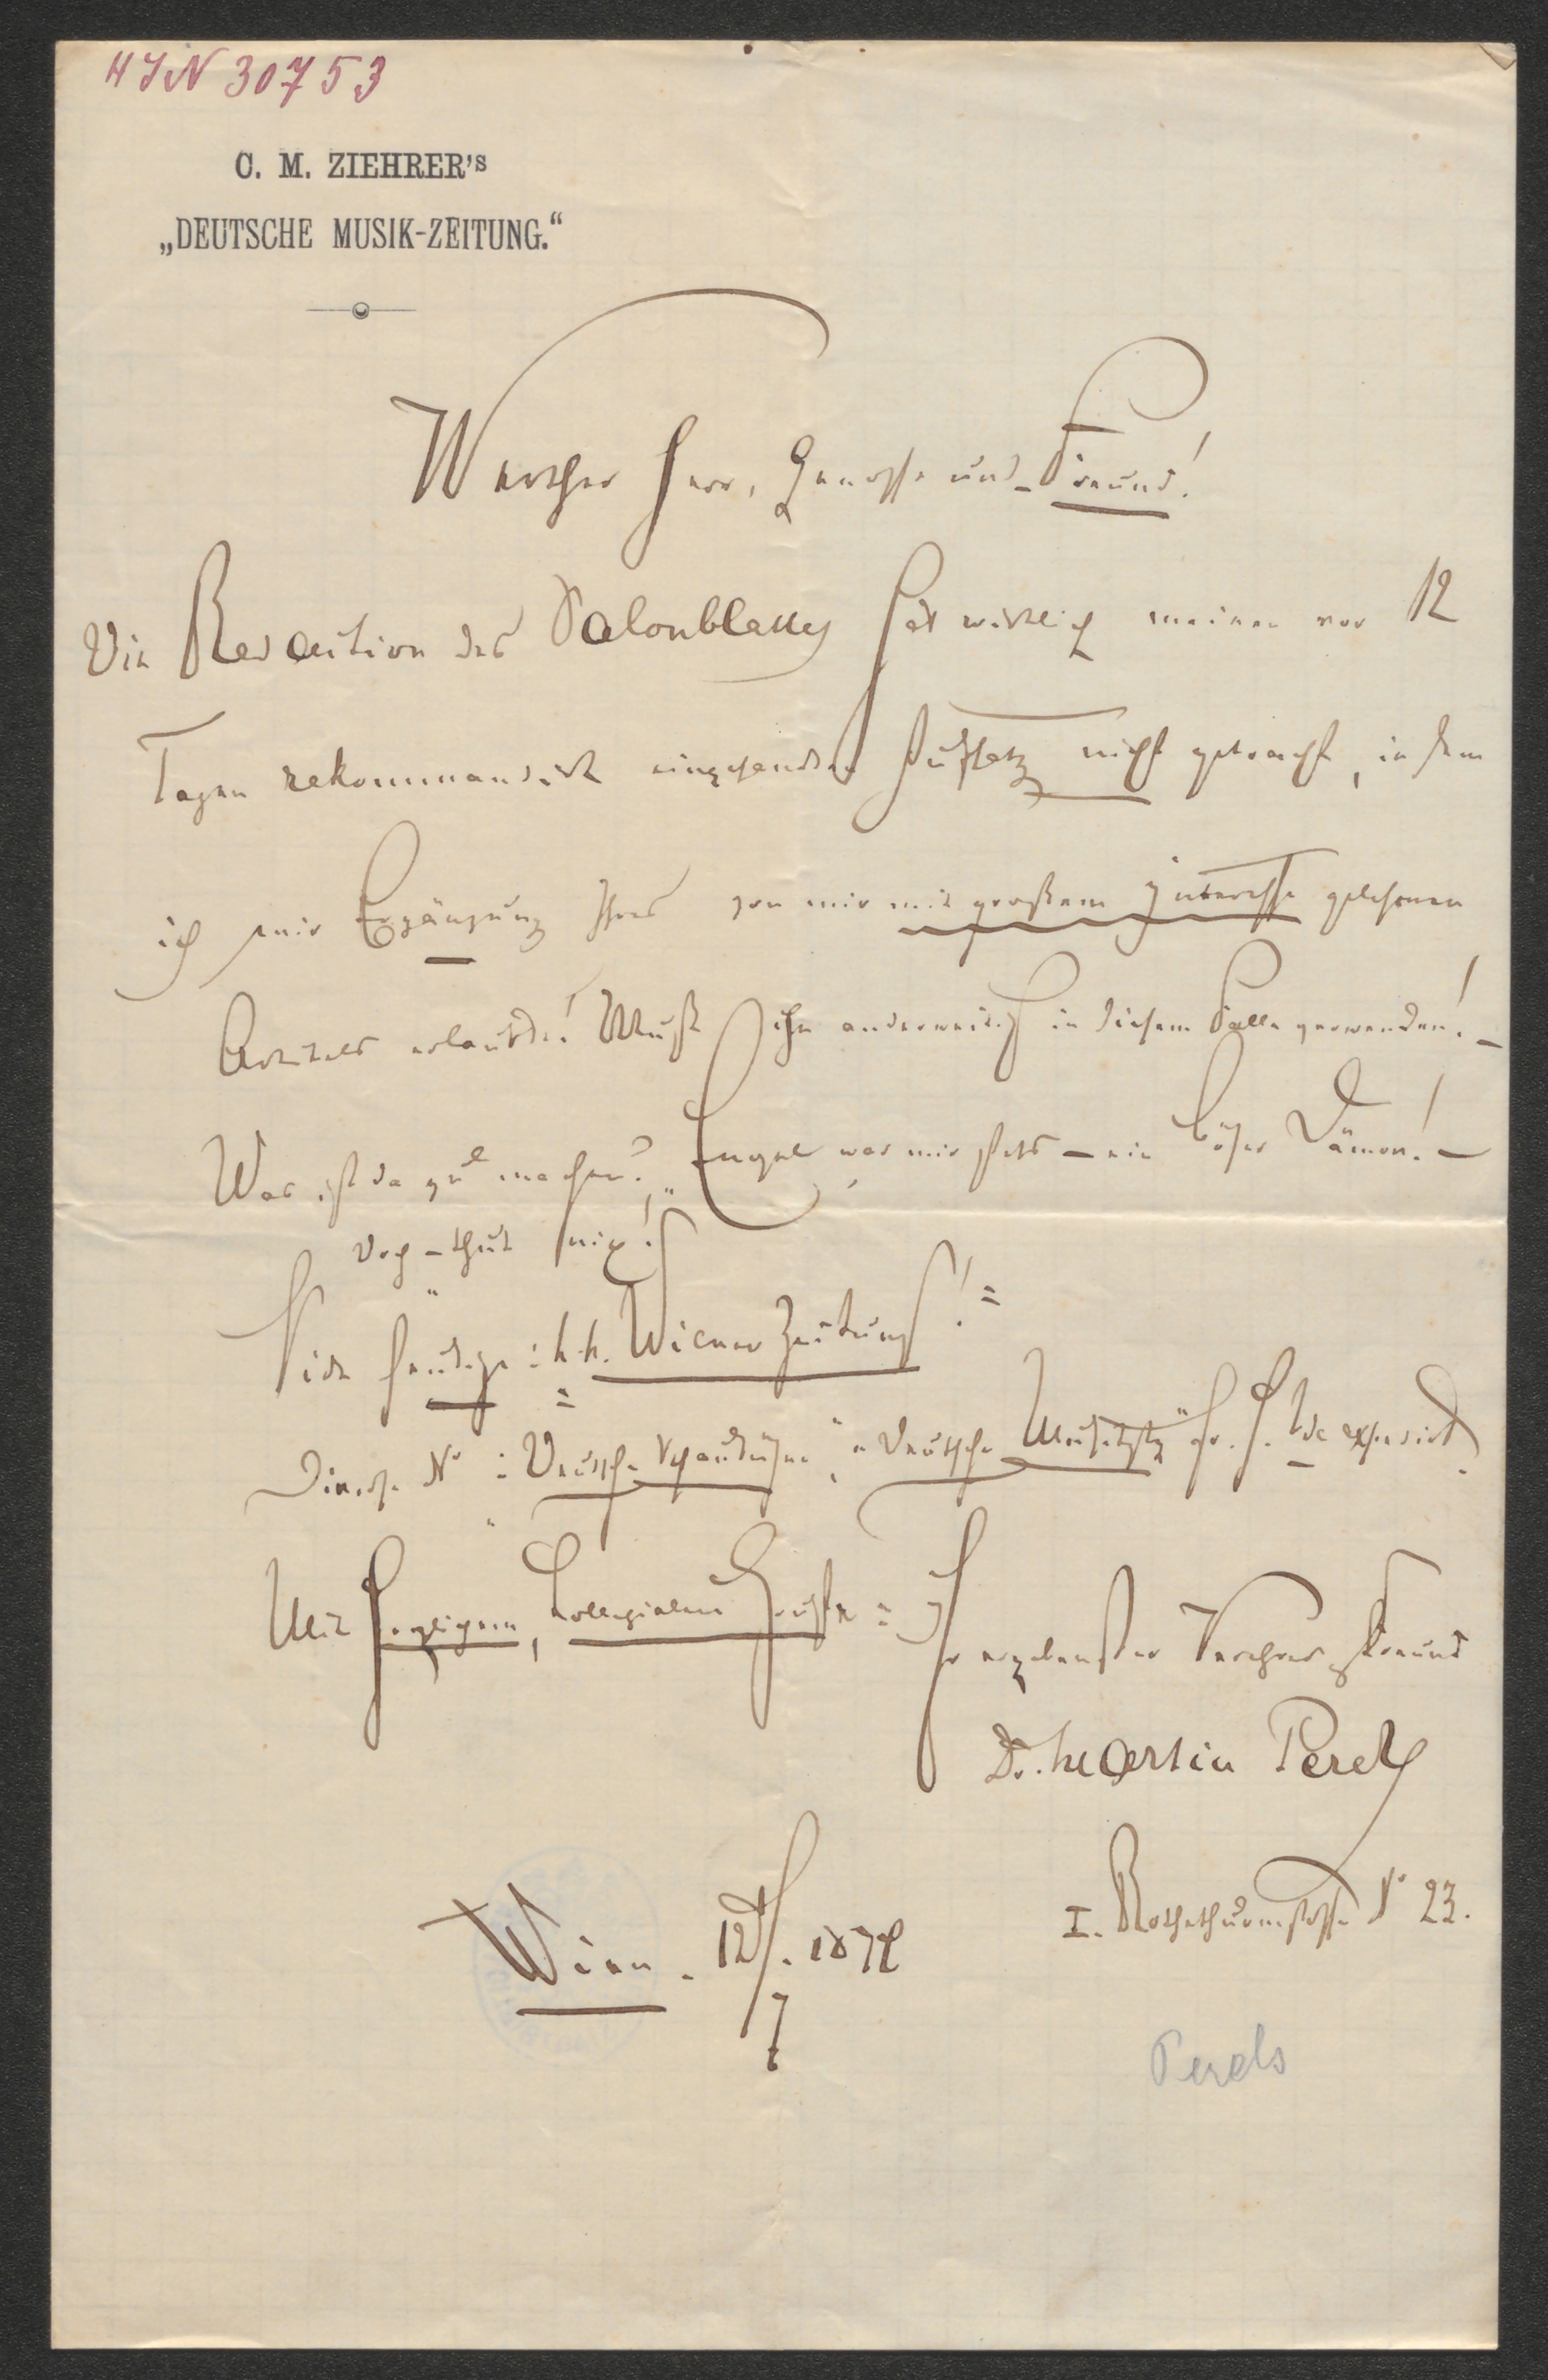 HIN 30753
C. M. ZIEHRER's
„DEUTSCHE MUSIK-ZEITUNG.“
Werther Herr, Genosse und Freund!
Die Redaction des Salonblattes hat wirklich meinen vor 12
Tagen rekommandirt eingesendeten Aufsatz nicht gebracht, in dem
ich mir Ergänzung Ihres von mir mit großem Interesse gelesenen
Artikels erlaubte! Muß ihn anderweitig in diesem Falle verwenden! –
Was ist da zu machen? „Engel“ war mir stets – ein böser Dämon! –
Doch – thut nix!
Vide heutige: k. k. Wiener Zeitung!
Diverse No: „Deutsche Schaubühne“, „Deutsche Musikztg“
Mit herzlichem, kollegialem Gruße: Ihr ergebenster Verehrer Freund
Dr. Martin Perels
I. Rothethurmstrasse No 23.
Wien. 12/7. 187
Perels